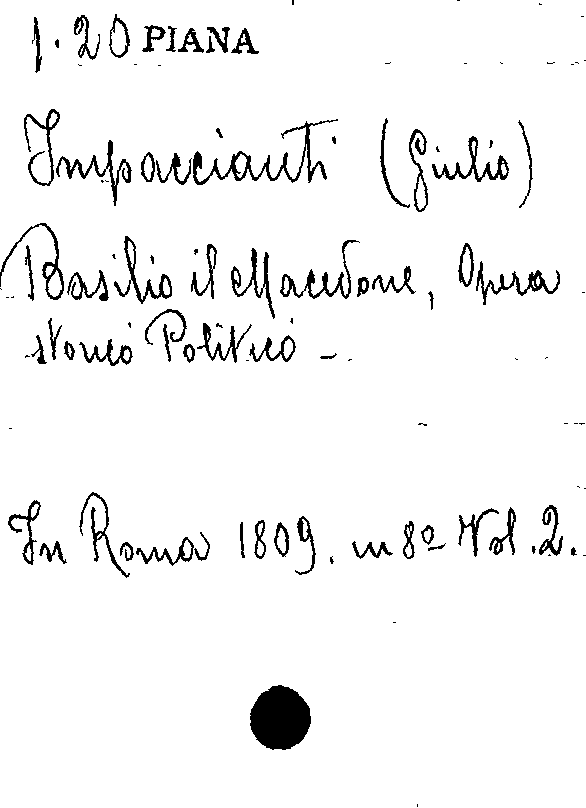 1.20 PIANA
Impaccianti (Giulio)
Basilio il Macedone, Opera
storico Politico -
In Roma 1809. in 8º Vol. 2.